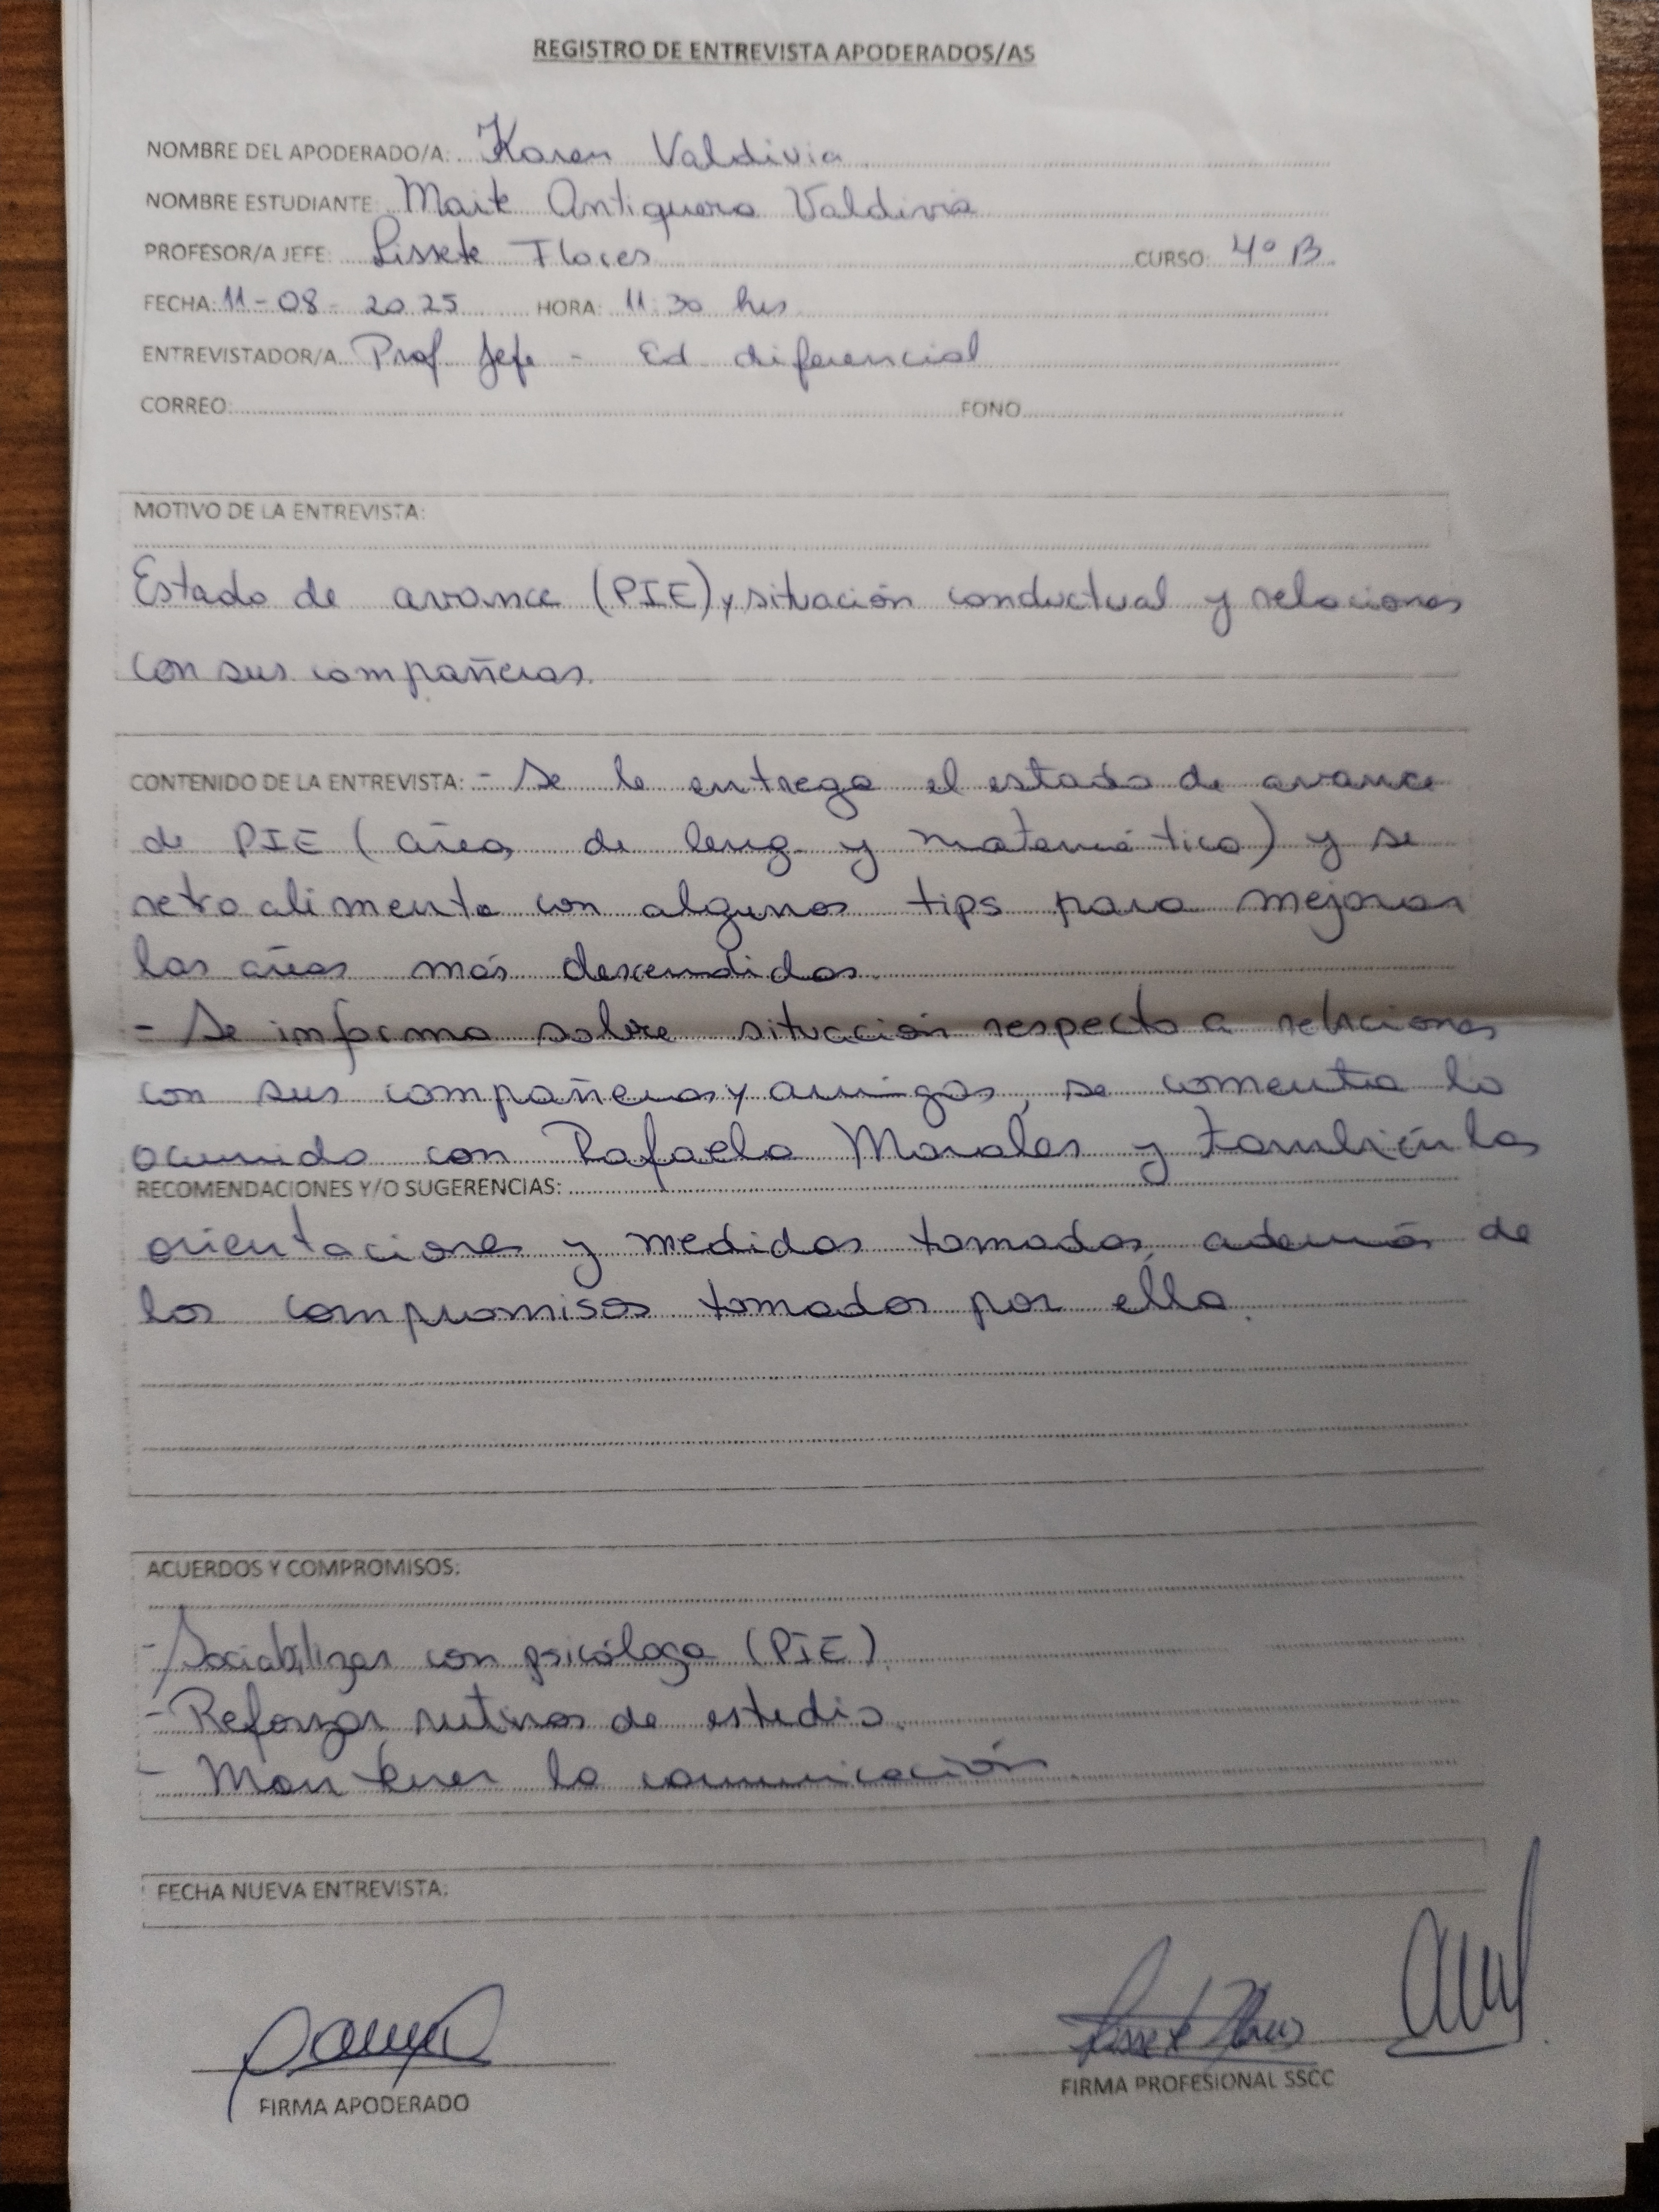 REGISTRO DE ENTREVISTA APODERADOS/AS
NOMBRE DEL APODERADO/A: Karen Valdivia
NOMBRE ESTUDIANTE Maite Antiquera Valdivia
PROFESOR/A JEFE: Lissete Flores CURSO: 4° B
FECHA: 11-08-2025 HORA: 11:30 hrs
ENTREVISTADOR/A Prof Jefe - Ed diferencial
CORREO: FONO
MOTIVO DE LA ENTREVISTA:
Estado de avance (PIE) y situación conductual y relaciones
con sus compañeras.
CONTENIDO DE LA ENTREVISTA: - Se le entrega el estado de avance
de PIE (área de leng. y matemática) y se
retroalimenta con algunos tips para mejorar
las áreas más descendidas.
- Se informa sobre situación respecto a relaciones
con sus compañeras y amigas, se comenta lo
ocurrido con Rafaela Morales y también las
RECOMENDACIONES Y/O SUGERENCIAS:
orientaciones y medidas tomadas, además de
los compromisos tomados por ella.
ACUERDOS Y COMPROMISOS:
- Sociabilizar con psicóloga (PIE).
- Reforzar rutinas de estudio.
- Mantener la comunicación.
FECHA NUEVA ENTREVISTA:
FIRMA APODERADO
FIRMA PROFESIONAL SSCC